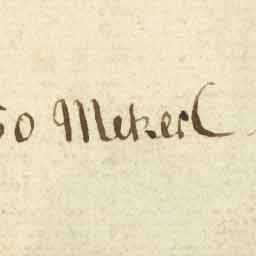 50 Mekerl